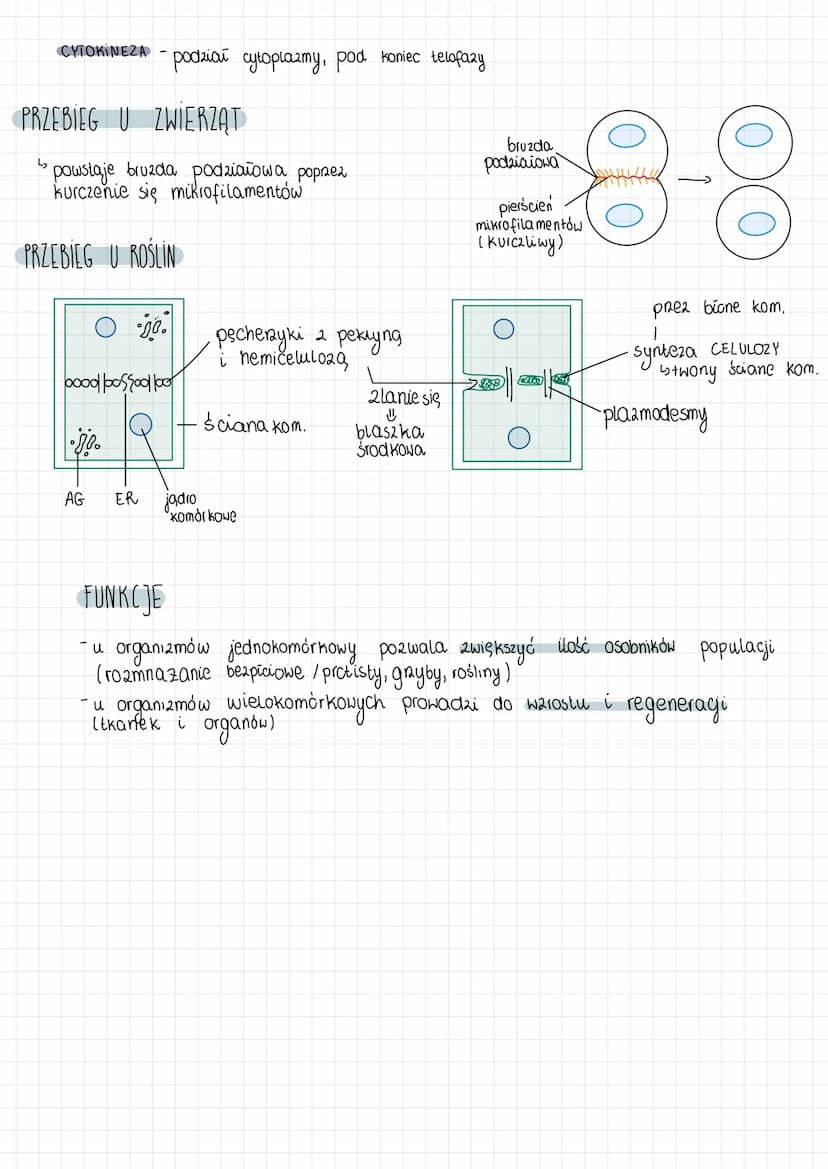 CYTOKINEZA - podział cytoplazmy, pod koniec telofazy
PRZEBIEG U ZWIERZĄT
↳ powstaje bruzda podziałowa poprzez
kurczenie się mikrofilamentów
bruzda
podziałowa
pierścień
mikrofilamentów
(kurczliwy)
PRZEBIEG U ROŚLIN
pęcherzyki z pektyną
i hemicelulozą
ściana kom.
AG
ER
jądro
komórkowe
zlanie się
⇓
blaszka
środkowa
przez błonę kom.
synteza CELULOZY
↳ tworzy ścianę kom.
plazmodesmy
FUNKCJE
- u organizmów jednokomórkowy pozwala zwiększyć ilość osobników populacji
(rozmnażanie bezpłciowe / protisty, grzyby, rośliny)
- u organizmów wielokomórkowych prowadzi do wzrostu i regeneracji
(tkanek i organów)